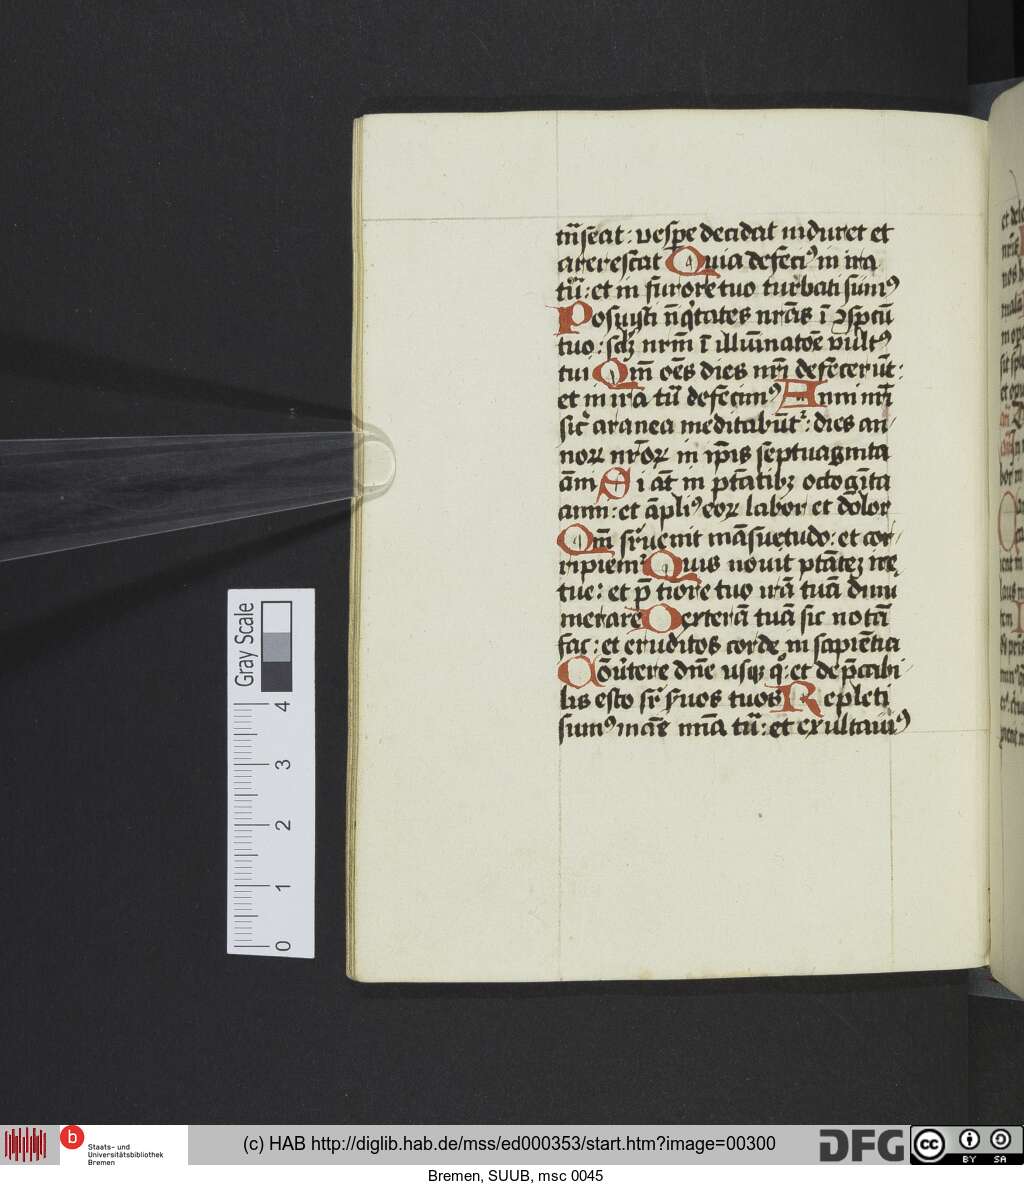 tr̄seat: vesꝑe decidat induret et
arescat Quia defeciꝰ in ira
tua: et in furore tuo turbati sumꝰ
Posuisti īiq̇tates nr̄as ī ꝯspcū
tuo: sclꝫ nrm̄ ī illūinatōe vultꝰ
tui Qm̄ oēs dies nrī defecerūt:
et in ira tua defecimꝰ Anni nrī
sic̄ aranea meditabūtᷣ: dies an
noꝝ nr̄oꝝ in ip̄is septuaginta
āni Si āt in ptātibꝫ octogīta
anni: et āpliꝰ eoꝝ labor et dolor
Qm̄ suꝑuenit māsuetudo: et cor
ripiemᷣ Quis nouit ptātē ire
tue: et p̄ tiōre tuo irā tuā dinu
merare Dexterā tuā sic notā
fac: et eruditos corde in sapiētia
Cōuertere dn̄e usqꝫ qͦ: et dep̄cabi
lis esto suꝑ suos tuos Repleti
sumꝰ mane mīa tua: et exultauīꝰ
Gray Scale
4
3
2
1
0
b
Staats- und
Universitätsbibliothek
Bremen
(c) HAB http://diglib.hab.de/mss/ed000353/start.htm?image=00300
DFG
cc
BY SA
Bremen, SUUB, msc 0045